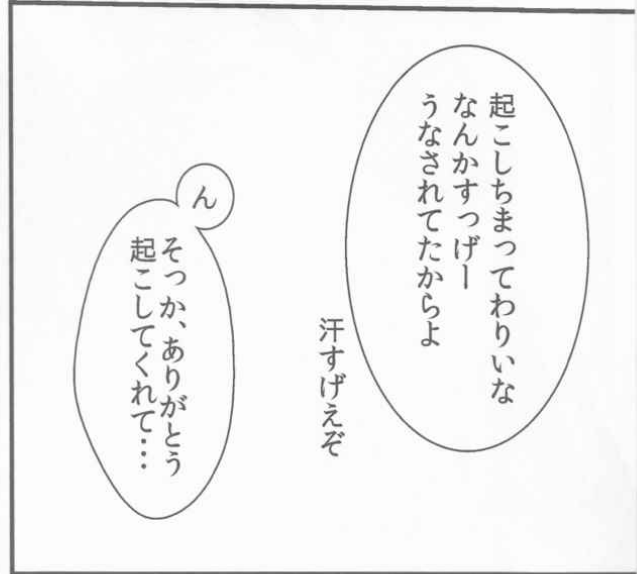 起こしちまってわりいな
なんかすっげー
うなされてたからよ
汗すげえぞ
ん
そっか、ありがとう
起こしてくれて・・・